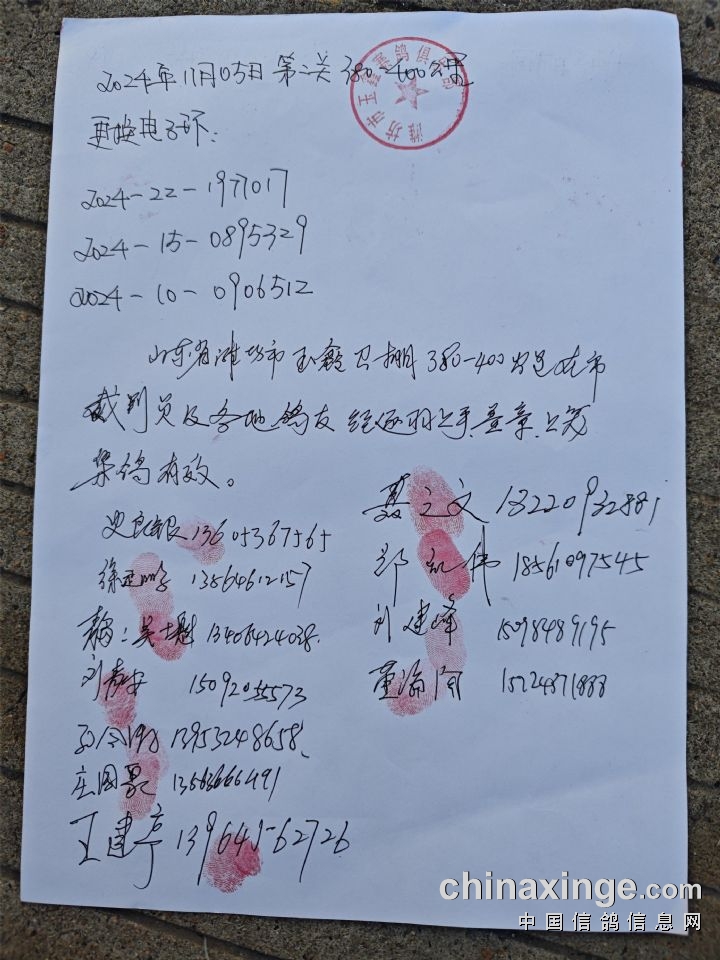 2024年11月05日 第二关 380-400公里
更换电子环:
2024-22-1977017
2024-15-0895329
2024-10-0906512
山东省潍坊市玉鑫公棚380-400公里在市
裁判员及各地鸽友经逐羽上手、盖章、上笼
集鸽有效。
史良银 13605367565
13864612157
吴士尉 13406424038
刘 安 15092055573
13953248658
庄国 13563666491
王建亭 13964562726
聂之文 13220932881
郑 伟 18561097545
刘建峰 15098489195
董 15724871888
chinaxinge.com
中国信鸽信息网